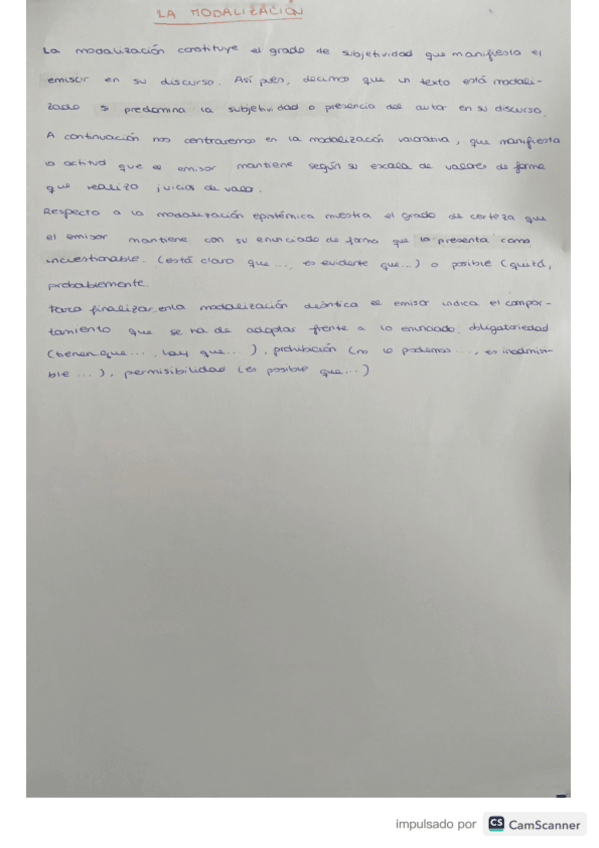 LA MODALIZACIÓN
La modalización constituye el grado de subjetividad que manifiesta el
emisor en su discurso. Así pues, decimos que un texto está modali-
zado si predomina la subjetividad o presencia del autor en su discurso.
A continuación nos centraremos en la modalización valorativa, que manifiesta
la actitud que el emisor mantiene según su escala de valores de forma
que realiza juicios de valor.
Respecto a la modalización epistémica muestra el grado de certeza que
el emisor mantiene con su enunciado de forma que lo presenta como
incuestionable. (está claro que ..., es evidente que...) o posible (quizá,
probablemente.
Para finalizar, en la modalización deóntica el emisor indica el compor-
tamiento que se ha de adoptar frente a lo enunciado: obligatoriedad
(tienen que ..., hay que ... ), prohibición (no lo podemos ..., es inadmisi-
ble ... ), permisibilidad (es posible que ... )
impulsado por CS CamScanner